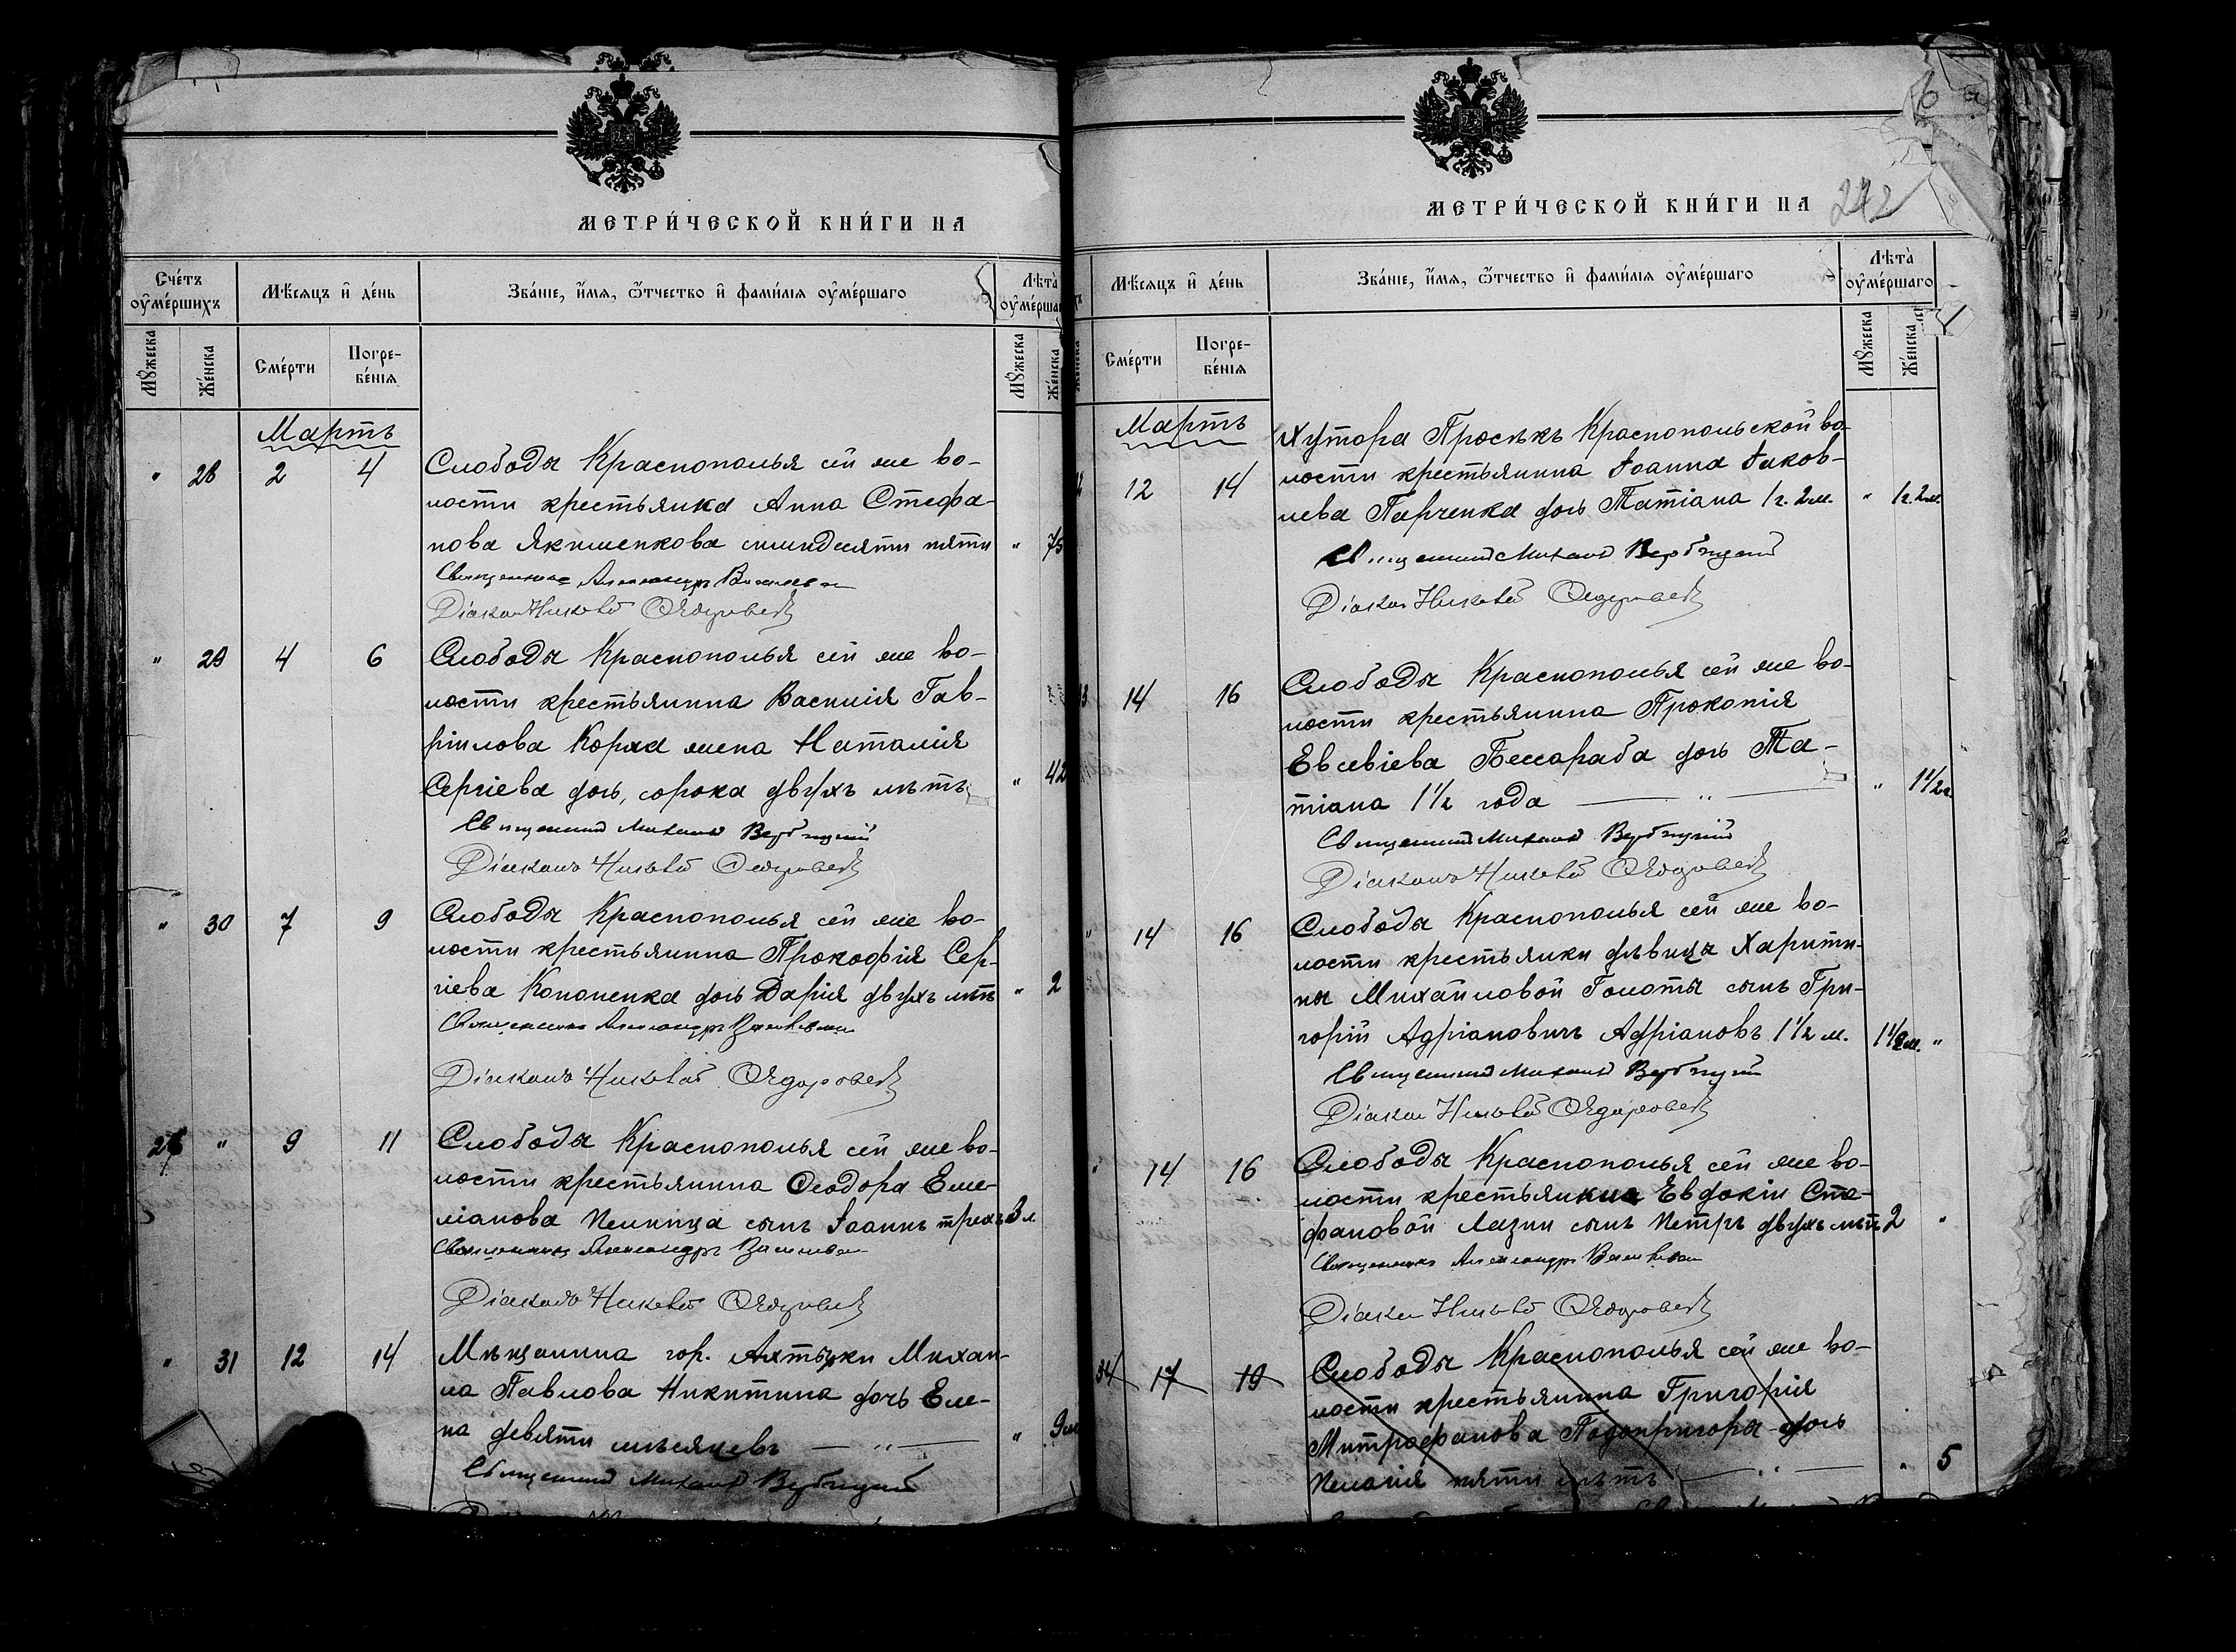 МЕТРИ́ЧЕСКОЙ КНИ́ГИ НА
Сче́тъ оу҆ме́ршихъ
Мѣ́сяцъ и҆ де́нь
Зва́нїе, и҆́мѧ, ѻ҆́тчество и҆ фами́лїѧ оу҆ме́ршаго
Лѣта̀ оу҆ме́рша
Мꙋ́жеска
Же́нска
Сме́рти
Погре-
бе́нїѧ
Мꙋ́жеска
Же́нска
Мартъ
" 28 2 4 Слободы Краснополья сей же во-
лости крестьянка Анна Стефа-
нова Якименкова семидесяти пяти " 75
Священникъ Александръ
Діаконъ Николай
" 29 4 6 Слободы Краснополья сей же во-
лости крестьянина Василія Гав-
рiилова Коржа жена Наталія
Сергіева дочь, сорока двухъ лѣтъ " 42
Священникъ Михаилъ Вербицкій
Діаконъ Николай
" 30 7 9 Слободы Краснополья сей же во-
лости крестьянина Прокофія Сер-
гіева Кононенка дочь Дарія двухъ лѣтъ " 2
Священникъ Александръ
Діаконъ Николай
" 9 11 Слободы Краснополья сей же во-
лости крестьянина Ѳеодора Еме-
ліанова сынъ Іоаннъ трехъ 3 л.
Священникъ Александръ
Діаконъ Николай
" 31 12 14 Мѣщанина гор. Ахтырки Михаи-
ла Павлова Никитина дочь Еле-
на девяти мѣсяцевъ — " — " 9 м
Священникъ Михаилъ Вербицкій
МЕТРИ́ЧЕСКОЙ КНИ́ГИ НА
242
Мѣ́сяцъ и҆ де́нь
Зва́нїе, и҆́мѧ, ѻ҆́тчество и҆ фами́лїѧ оу҆ме́ршаго
Лѣта̀ оу҆ме́ршаго
Сме́рти
Погре-
бе́нїѧ
Мꙋ́жеска
Же́нска
Мартъ
Хутора Просѣкъ Краснопольской во-
12 14 лости крестьянина Іоанна Іаков-
лева Парченка дочь Татіана 1 г. 2 м. " 1 г. 2 м.
Священникъ Михаилъ Вербицкій
Діаконъ Николай
14 16 Слободы Краснополья сей же во-
лости крестьянина Прокопія
Евсевіева Бессараба дочь Та-
тіана 1 1/2 года — " — " 1 1/2 г.
Священникъ Михаилъ Вербицкій
Діаконъ Николай
" 14 16 Слободы Краснополья сей же во-
лости крестьянки дѣвицы Харити-
ны Михайловой Голоты сынъ Гри-
горій Адріановичъ Адріановъ 1 1/2 м. 1 1/2 м. "
Священникъ Михаилъ Вербицкій
Діаконъ Николай
" 14 16 Слободы Краснополья сей же во-
лости Евдокіи Сте-
фановой Лазни сынъ Петръ двухъ лѣтъ 2 "
Священникъ Александръ
Діаконъ Николай
34 17 19 Слободы Краснополья сей же во-
лости крестьянина Григорія
Митрофанова Подопригоры дочь
Пелагія пяти лѣтъ — " — " 5